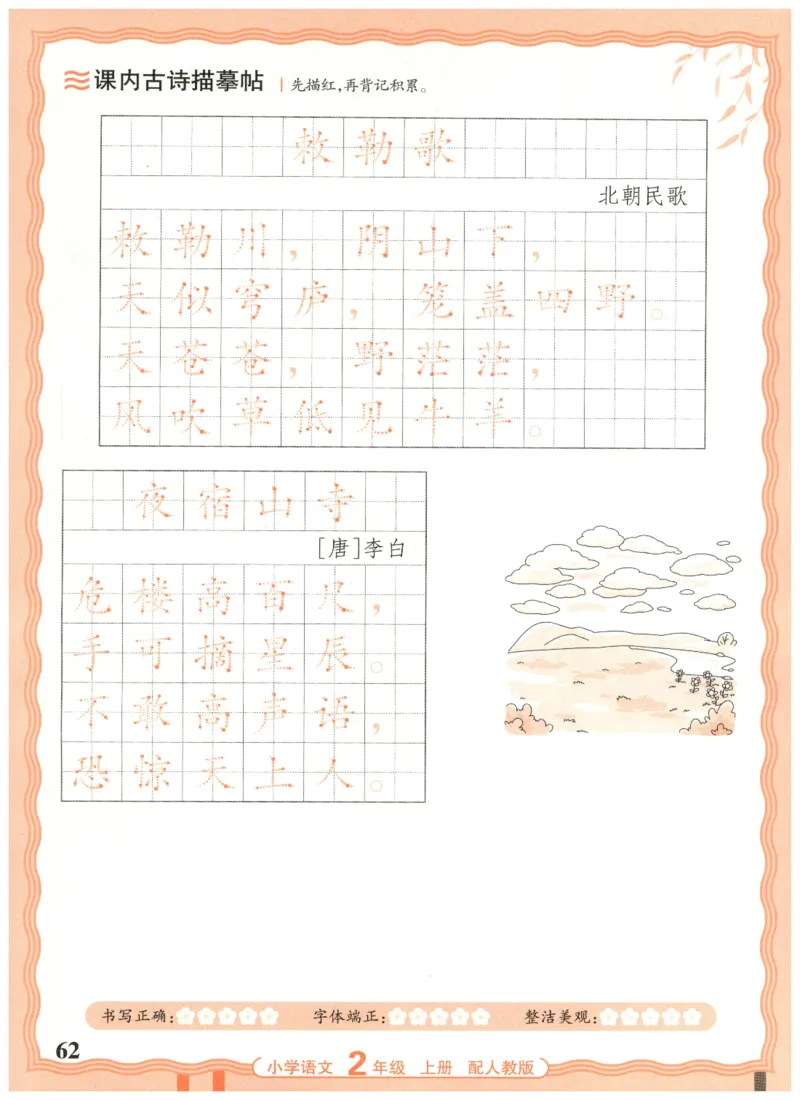 课内古诗描摹帖 | 先描红,再背记积累。
敕勒歌
北朝民歌
敕勒川，阴山下，
天似穹庐，笼盖四野。
天苍苍，野茫茫，
风吹草低见牛羊。
夜宿山寺
[唐]李白
危楼高百尺，
手可摘星辰。
不敢高声语，
恐惊天上人。
书写正确: 字体端正: 整洁美观:
62
小学语文 2年级 上册 配人教版